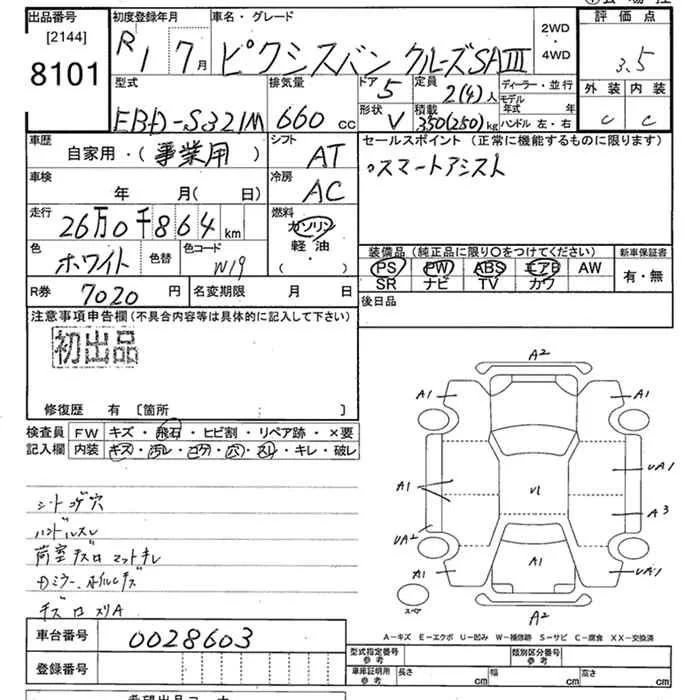 出品番号
[2144]
8101
初度登録年月
R1 7月
車名・グレード
ピクシスバン クルーズSAⅢ
2WD
・
4WD
評価点
3.5
外装 内装
C C
型式
EBD-S321M
排気量
660 cc
ドア 5
形状 V
定員 2(4)人
積載 350(250)kg
ディーラー・並行
モデル年式 年
ハンドル 左・右
車歴
自家用・(事業用)
シフト
AT
車検
年 月(日)
冷房
AC
走行
26万0千864km
燃料
ガソリン
軽油
( ・ )
色
ホワイト
色替
色コード
W19
R券 7020 円
名変期限 月 日
セールスポイント(正常に機能するものに限ります)
○スマートアシスト
装備品(純正品に限り○をつけてください)
PS PW ABS エアB AW
SR ナビ TV カワ
新車保証書
有・無
後日品
注意事項申告欄(不具合内容等は具体的に記入して下さい)
初出品
修復歴 有 [箇所 ]
検査員記入欄
FW キズ・飛石・ヒビ割・リペア跡・×要
内装 キズ・汚レ・コゲ・穴・スレ・キレ・破レ
シートコゲ穴
ハンドルスレ
荷室キズ
A2
A1 A1
A1 U1 UA1
A3
UA2 A1
A1 UA1
スペア
A2
A-キズ E-エクボ U-凹み W-補修跡 S-サビ C-腐食 XX-交換済
車台番号 0028603
登録番号
型式指定番号 参考
類別区分番号 参考
車庫証明用 参考 長さ cm 幅 cm 高さ cm